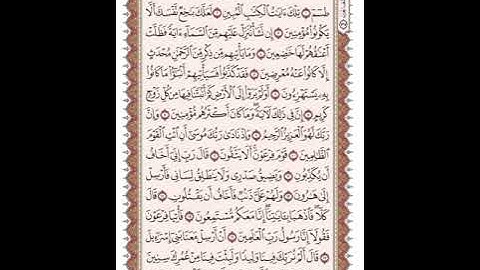 طسٓمٓ ۝ تِلْكَ ءَايَٰتُ ٱلْكِتَٰبِ ٱلْمُبِينِ ۝ لَعَلَّكَ بَٰخِعٌ نَّفْسَكَ أَلَّا
يَكُونُوا۟ مُؤْمِنِينَ ۝ إِن نَّشَأْ نُنَزِّلْ عَلَيْهِم مِّنَ ٱلسَّمَآءِ ءَايَةً فَظَلَّتْ
أَعْنَٰقُهُمْ لَهَا خَٰضِعِينَ ۝ وَمَا يَأْتِيهِم مِّن ذِكْرٍ مِّنَ ٱلرَّحْمَٰنِ مُحْدَثٍ
إِلَّا كَانُوا۟ عَنْهُ مُعْرِضِينَ ۝ فَقَدْ كَذَّبُوا۟ فَسَيَأْتِيهِمْ أَنۢبَٰٓؤُا۟ مَا كَانُوا۟
بِهِۦ يَسْتَهْزِءُونَ ۝ أَوَلَمْ يَرَوْا۟ إِلَى ٱلْأَرْضِ كَمْ أَنۢبَتْنَا فِيهَا مِن كُلِّ زَوْجٍ
كَرِيمٍ ۝ إِنَّ فِى ذَٰلِكَ لَءَايَةً وَمَا كَانَ أَكْثَرُهُم مُّؤْمِنِينَ ۝ وَإِنَّ
رَبَّكَ لَهُوَ ٱلْعَزِيزُ ٱلرَّحِيمُ ۝ وَإِذْ نَادَىٰ رَبُّكَ مُوسَىٰٓ أَنِ ٱئْتِ ٱلْقَوْمَ
ٱلظَّٰلِمِينَ ۝ قَوْمَ فِرْعَوْنَ أَلَا يَتَّقُونَ ۝ قَالَ رَبِّ إِنِّىٓ أَخَافُ
أَن يُكَذِّبُونِ ۝ وَيَضِيقُ صَدْرِى وَلَا يَنطَلِقُ لِسَانِى فَأَرْسِلْ
إِلَىٰ هَٰرُونَ ۝ وَلَهُمْ عَلَىَّ ذَنۢبٌ فَأَخَافُ أَن يَقْتُلُونِ ۝ قَالَ
كَلَّا فَٱذْهَبَا بِـَٔايَٰتِنَآ إِنَّا مَعَكُم مُّسْتَمِعُونَ ۝ فَأْتِيَا فِرْعَوْنَ
فَقُولَآ إِنَّا رَسُولُ رَبِّ ٱلْعَٰلَمِينَ ۝ أَنْ أَرْسِلْ مَعَنَا بَنِىٓ إِسْرَٰٓءِيلَ
۝ قَالَ أَلَمْ نُرَبِّكَ فِينَا وَلِيدًا وَلَبِثْتَ فِينَا مِنْ عُمُرِكَ سِنِينَ